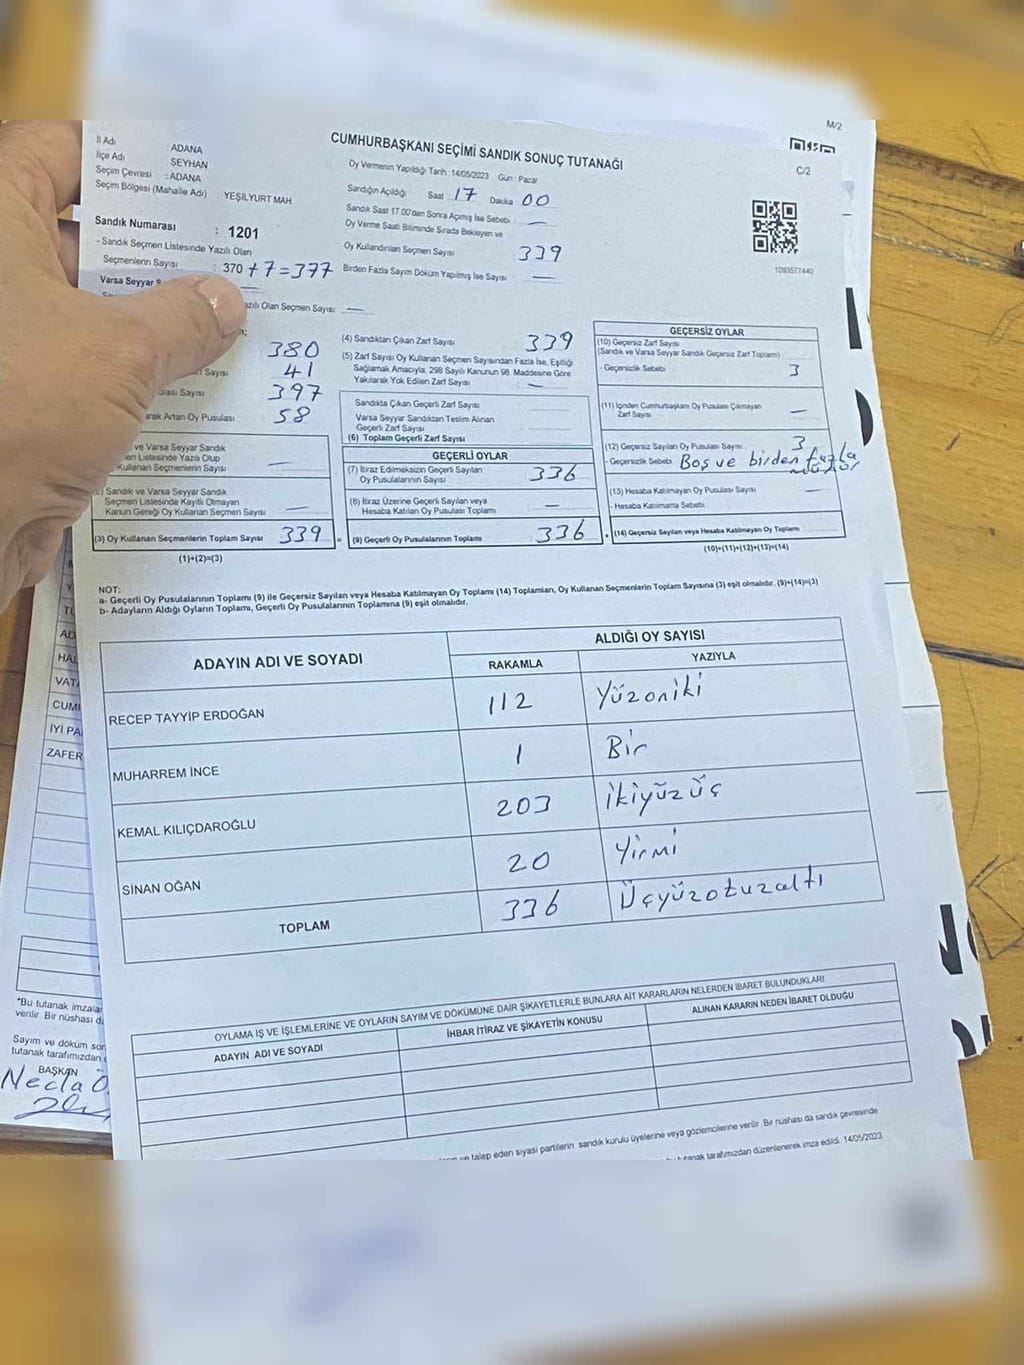 M/2
C/2
CUMHURBAŞKANI SEÇİMİ SANDIK SONUÇ TUTANAĞI
İl Adı ADANA
İlçe Adı SEYHAN
Seçim Çevresi : ADANA
Seçim Bölgesi (Mahalle Adı) : YEŞİLYURT MAH.
Sandık Numarası : 1201
- Sandık Seçmen Listesinde Yazılı Olan
Seçmenlerin Sayısı : 370 +7=377
Varsa Seyyar
Yazılı Olan Seçmen Sayısı: —
Oy Vermenin Yapıldığı Tarih : 14/05/2023 Gün : Pazar
Sandığın Açıldığı Saat 17 Dakika 00
Sandık Saat 17.00'den Sonra Açılmış İse Sebebi : —
Oy Verme Saati Bitiminde Sırada Bekleyen ve
Oy Kullandırılan Seçmen Sayısı : 339
Birden Fazla Sayım Döküm Yapılmış İse Sayısı : —
1093577440
380
Sayısı 41
Sayısı 397
Artan Oy Pusulası 58
ve Varsa Seyyar Sandık
Listesinde Yazılı Olup
Kullanan Seçmenlerin Sayısı —
Sandık ve Varsa Seyyar Sandık
Seçmen Listesinde Kayıtlı Olmayan
Kanun Gereği Oy Kullanan Seçmen Sayısı —
(3) Oy Kullanan Seçmenlerin Toplam Sayısı 339 =
(1)+(2)=(3)
(4) Sandıktan Çıkan Zarf Sayısı 339
(5) Zarf Sayısı Oy Kullanan Seçmen Sayısından Fazla İse, Eşitliği
Sağlamak Amacıyla, 298 Sayılı Kanunun 98. Maddesine Göre
Yakılarak Yok Edilen Zarf Sayısı —
Sandıkta Çıkan Geçerli Zarf Sayısı
Varsa Seyyar Sandıktan Teslim Alınan
Geçerli Zarf Sayısı
(6) Toplam Geçerli Zarf Sayısı
GEÇERLİ OYLAR
(7) İtiraz Edilmeksizin Geçerli Sayılan
Oy Pusulalarının Sayısı 336
(8) İtiraz Üzerine Geçerli Sayılan veya
Hesaba Katılan Oy Pusulası Toplamı —
(9) Geçerli Oy Pusulalarının Toplamı 336 +
GEÇERSİZ OYLAR
(10) Geçersiz Zarf Sayısı
(Sandık ve Varsa Seyyar Sandık Geçersiz Zarf Toplamı)
- Geçersizlik Sebebi 3
(11) İçinden Cumhurbaşkanı Oy Pusulası Çıkmayan
Zarf Sayısı —
(12) Geçersiz Sayılan Oy Pusulası Sayısı 3
- Geçersizlik Sebebi Boş ve birden fazla
(13) Hesaba Katılmayan Oy Pusulası Sayısı —
- Hesaba Katılmama Sebebi
(14) Geçersiz Sayılan veya Hesaba Katılmayan Oy Toplamı
(10)+(11)+(12)+(13)=(14)
NOT:
a- Geçerli Oy Pusulalarının Toplamı (9) ile Geçersiz Sayılan veya Hesaba Katılmayan Oy Toplamı (14) Toplamları, Oy Kullanan Seçmenlerin Toplam Sayısına (3) eşit olmalıdır. (9)+(14)=(3)
b- Adayların Aldığı Oyların Toplamı, Geçerli Oy Pusulalarının Toplamına (9) eşit olmalıdır.
ADAYIN ADI VE SOYADI ALDIĞI OY SAYISI
RAKAMLA YAZIYLA
RECEP TAYYİP ERDOĞAN 112 Yüzoniki
MUHARREM İNCE 1 Bir
KEMAL KILIÇDAROĞLU 203 İkiyüzüç
SİNAN OĞAN 20 Yirmi
TOPLAM 336 Üçyüzotuzaltı
OYLAMA İŞ VE İŞLEMLERİNE VE OYLARIN SAYIM VE DÖKÜMÜNE DAİR ŞİKAYETLERLE BUNLARA AİT KARARLARIN NELERDEN İBARET BULUNDUKLARI
ADAYIN ADI VE SOYADI İHBAR İTİRAZ VE ŞİKAYETİN KONUSU ALINAN KARARIN NEDEN İBARET OLDUĞU
ve talep eden siyasi partilerin sandık kurulu üyelerine veya gözlemcilerine verilir. Bir nüshası da sandık çevresinde
tutanak tarafımızdan düzenlenerek imza edildi. 14/05/2023
AD
HAL
VATA
CUM
İYİ PA
ZAFER
*Bu tutanak imzalar
verilir. Bir nüshası d
Sayım ve döküm son
tutanak tarafımızdan
BAŞKAN
Necla Ö